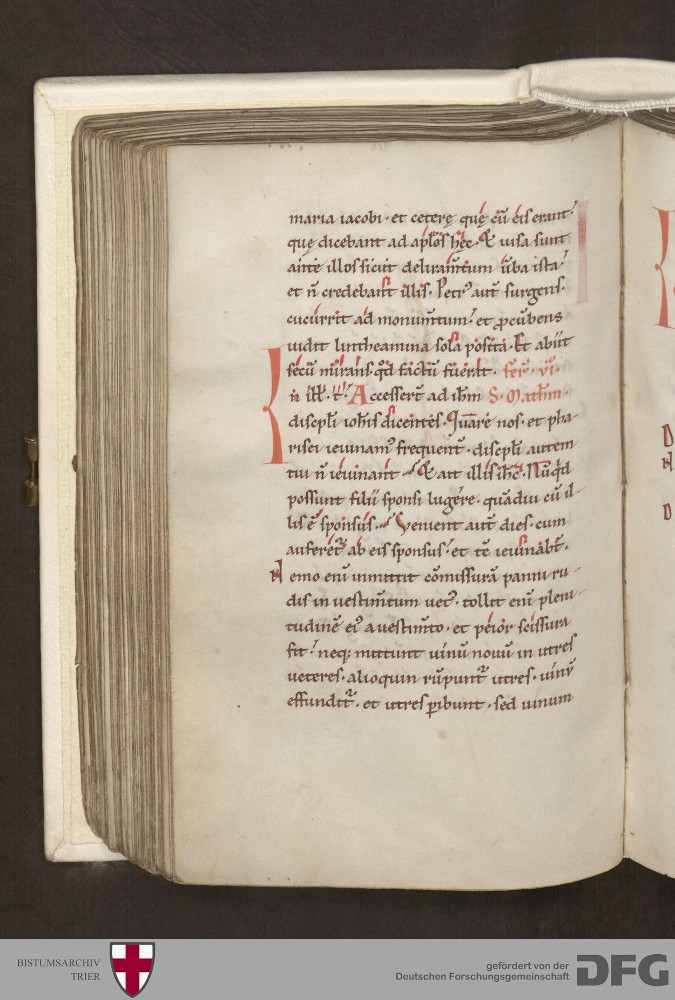 maria iacobi · et ceterę quę cū eis erant ·
quę dicebant ad apl̄os hęc · Et uisa sunt
ante illos sicut deliram̄tum ūba ista ·
et n̄ credebant illis · Petr᾿ aut̄ surgens ·
cucurrit ad monum̄tum · et ꝓcūbens
uidit lintheamina sola posita · Et abiit
secū mirans qd̓ factū fuerat · fer̄ · vi ·
In ill̄ · t̄ · Accessert̄ ad ih̄m S · Math̄m ·
discipl̄i ioh̄is dicentes · Quare nos · et pha
risei ieiunam᾿ frequent̄ · discipl̄i autem
tui n̄ ieiunant · Et ait illis ih̄c · Nūqd̓
possunt filii sponsi lugere · quādiu cū il
lis ē sponsus · Venient aut̄ dies · cum
auferet̄ ab eis sponsus · et tc̄ ieiunabt̄ ·
Nemo eni̅ inmittit cōmissurā panni ru
dis in uestim̄tum uet᾿ · tollit eni̅ pleni
tudinē ei᾿ a uestim̄to · et peior scissura
fit · neq; mittunt uinū nouū in utres
ueteres · alioquin rūpunt̄ utres · uinū
effundit̄ · et utres ꝑibunt · sed uinum
BISTUMSARCHIV
TRIER
gefördert von der
Deutschen Forschungsgemeinschaft
DFG